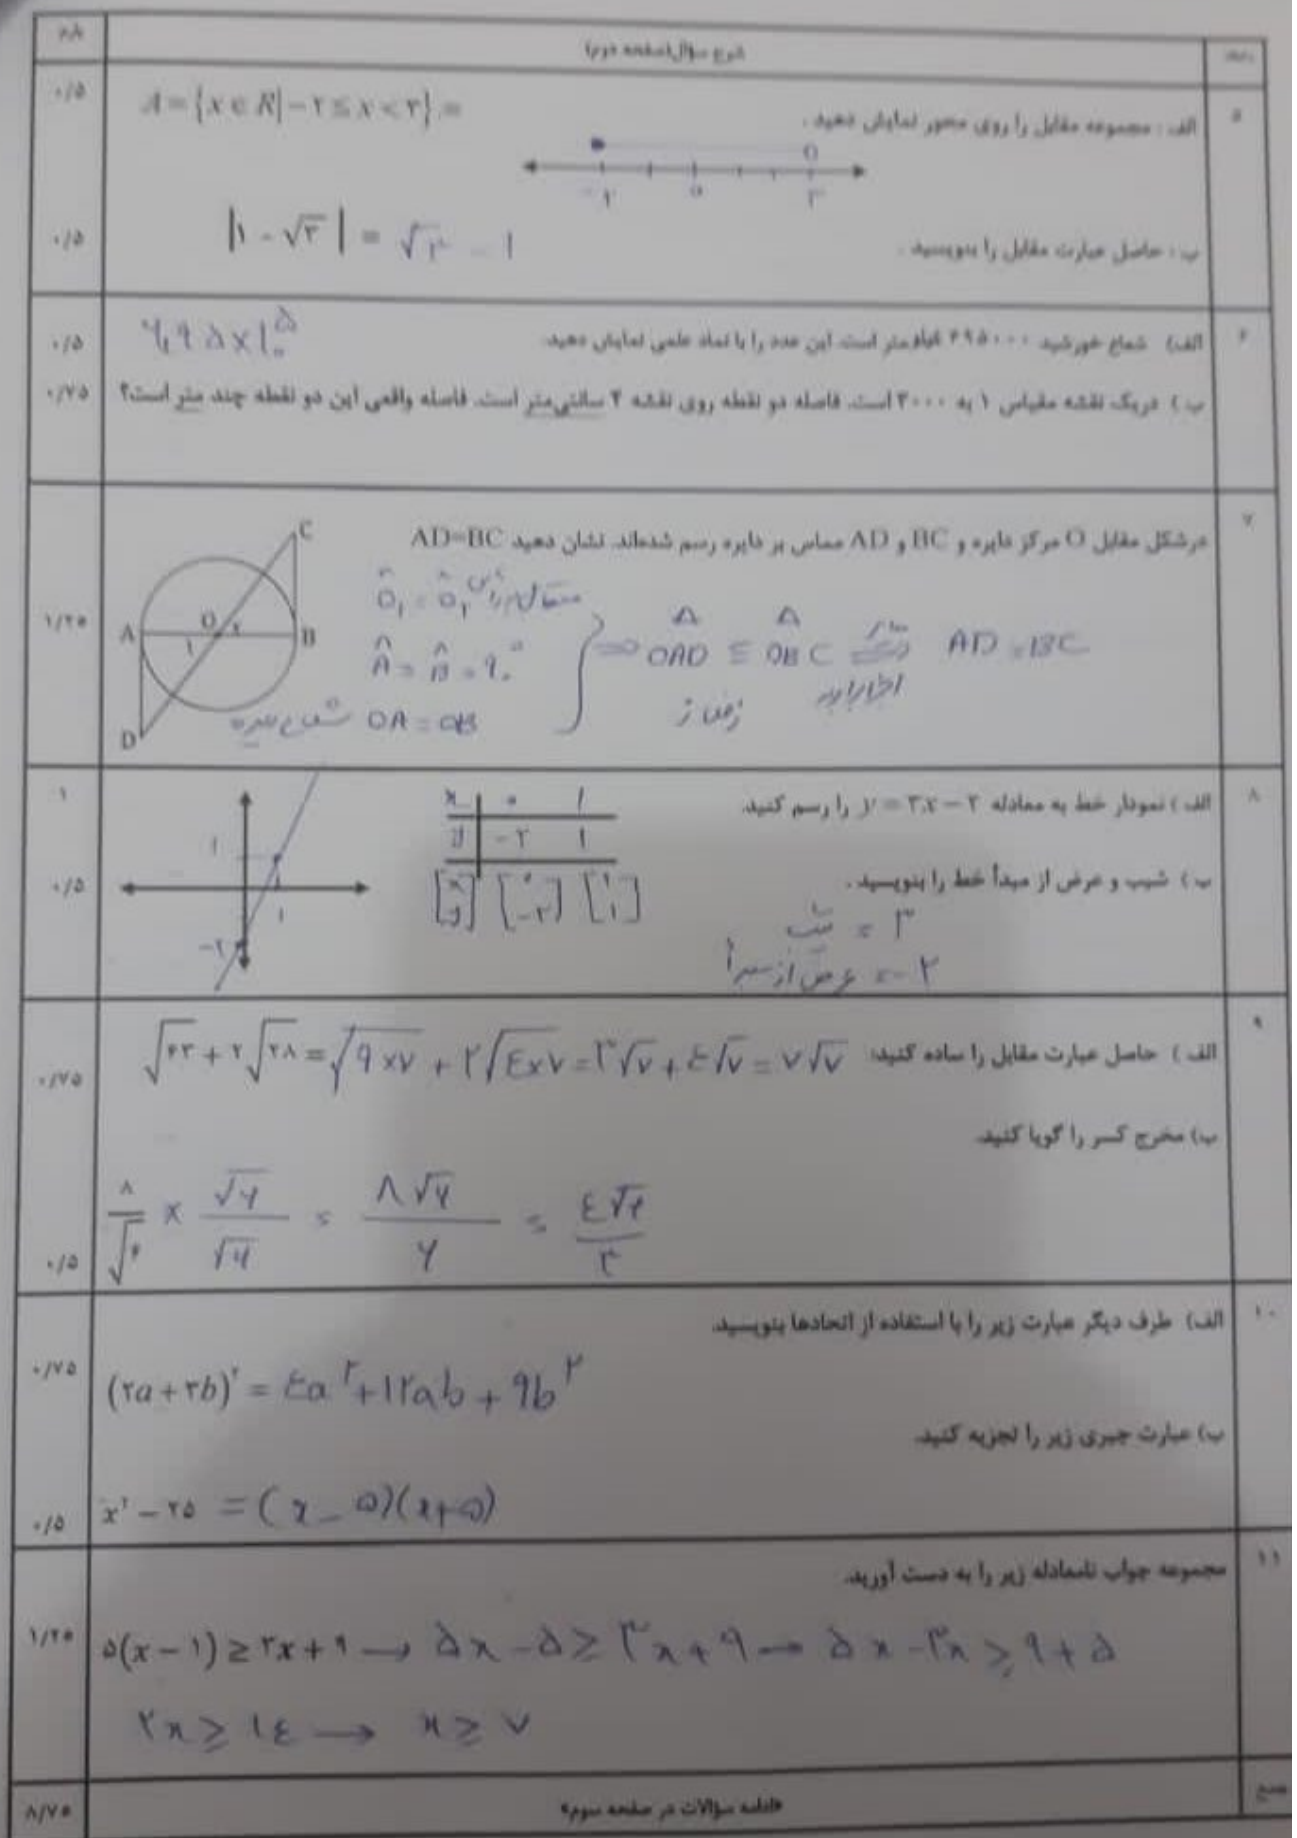 ردیف شرح سؤال(صفحه دوم) بارم
۵ الف : مجموعه مقابل را روی محور نمایش دهید . A = {x ∈ R| −۲ ≤ x < ۳} = ۰/۵
−۲ ۰ ۳
ب : حاصل عبارت مقابل را بنویسید . |۱ − √۳| = √۳ − ۱ ۰/۵
۶ الف) شعاع خورشید ۶۹۵۰۰۰ کیلومتر است. این عدد را با نماد علمی نمایش دهید. ۶,۹۵×۱۰^۵ ۰/۵
ب ) دریک نقشه مقیاس ۱ به ۳۰۰۰ است. فاصله دو نقطه روی نقشه ۴ سانتی‌متر است. فاصله واقعی این دو نقطه چند متر است؟ ۰/۷۵
۷ درشکل مقابل O مرکز دایره و BC و AD مماس بر دایره رسم شده‌اند. نشان دهید AD=BC ۱/۲۵
C
A ۱ O ۲ B
D
Ô۱ = Ô۲ متقابل به رأس
Â = B̂ = ۹۰°
OA = OB شعاع دایره
} ⇒ OAD ≅ OBC ⇒ AD = BC
ز ض ز
اجزا برابرند
۸ الف ) نمودار خط به معادله y = ۳x − ۲ را رسم کنید. ۱
x ۰ ۱
y −۲ ۱
[x y] [۰ −۲] [۱ ۱]
۱ ۱ −۲
ب ) شیب و عرض از مبدأ خط را بنویسید . ۰/۵
۳ = شیب
−۲ = عرض از مبدأ
۹ الف ) حاصل عبارت مقابل را ساده کنید: √۶۳ + ۲√۲۸ = √۹×۷ + ۲√٤×۷ = ۳√۷ + ٤√۷ = ۷√۷ ۰/۷۵
ب) مخرج کسر را گویا کنید.
۸/√۶ × √۶/√۶ = ۸√۶/۶ = ٤√۶/۳ ۰/۵
۱۰ الف) طرف دیگر عبارت زیر را با استفاده از اتحادها بنویسید.
(۲a + ۳b)^۲ = ٤a^۲ + ۱۲ab + ۹b^۲ ۰/۷۵
ب) عبارت جبری زیر را تجزیه کنید.
x^۲ − ۲۵ = (x − ۵)(x + ۵) ۰/۵
۱۱ مجموعه جواب نامعادله زیر را به دست آورید.
۵(x − ۱) ≥ ۳x + ۹ → ۵x − ۵ ≥ ۳x + ۹ → ۵x − ۳x ≥ ۹ + ۵ ۱/۲۵
۲x ≥ ۱٤ → x ≥ ۷
جمع «ادامه سؤالات در صفحه سوم» ۸/۷۵